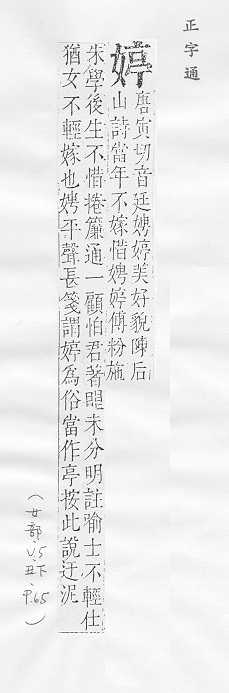 正字通
婷
唐寅切音廷娉婷美好貌陳后
山詩當年不嫁惜娉婷傅粉施
朱學後生不惜捲簾通一顧怕君著眼未分明註喻士不輕仕
猶女不輕嫁也娉平聲長箋謂婷為俗當作亭按此說迂泥
(女部、V.5、丑下、P.65)